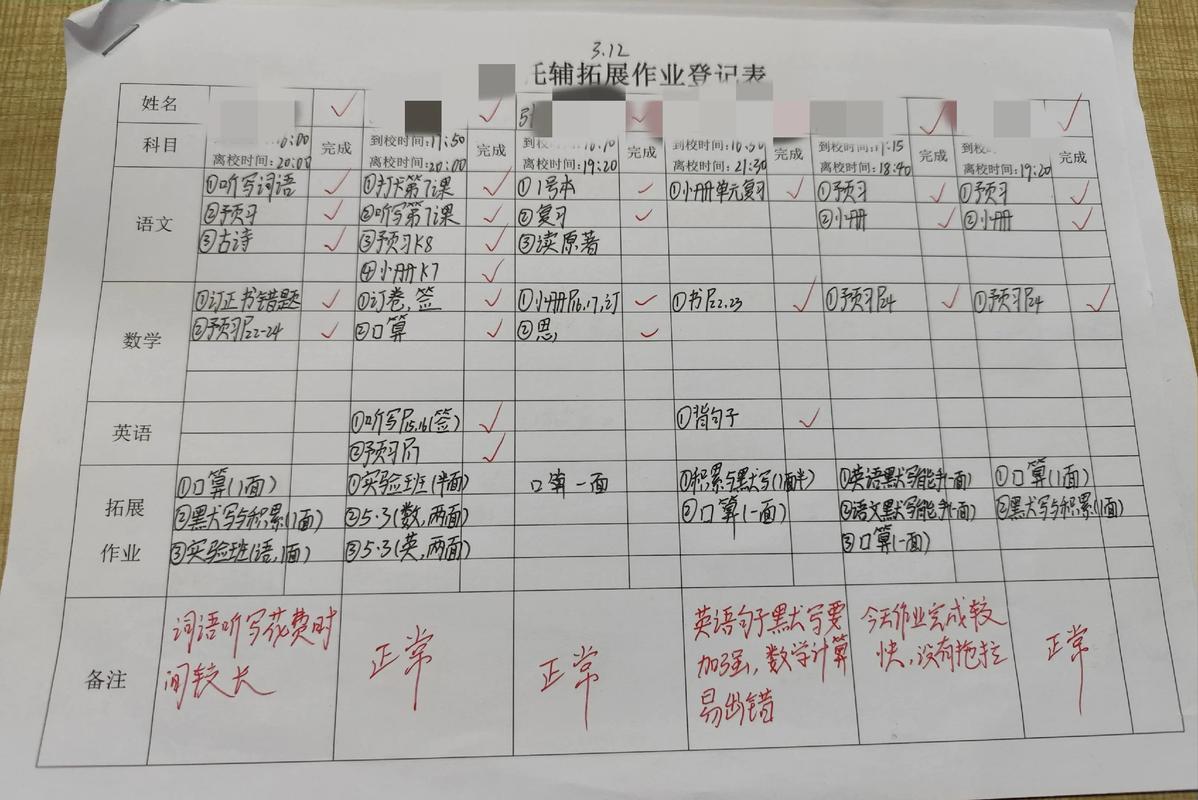 3.12
托辅拓展作业登记表
姓名
科目 完成 到校时间:17:50 完成 完成 完成 完成 完成
离校时间:20:00 离校时间:20:00 19:20 离校时间:21:30 离校时间:18:40 19:20
语文 ①听写词语 ①打卡第7课 ①1号本 ①小册单元复习 ①预习 ①预习
②预习 ②听写第7课 ②复习 ②小册 ②小册
③古诗 ③预习K8 ③读原著
④小册K7
数学 ①订正书错题 ①订卷,签 ①小册P16,17,订 ①书P22,23 ①预习P24 ①预习P24
②预习P22-24 ②口算 ②思
英语 ①听写P15,16(签) ①背句子
②预习P17
拓展作业 ①口算(1面) ①实验班(半面) 口算一面 ①积累与默写(1面半) ①英语默写能手(一面) ①口算(1面)
②默写与积累(1面) ②5·3(数,两面) ②口算(一面) ②语文默写能手(一面) ②默写与积累(1面)
③实验班(语,1面) ③5·3(英,两面) ③口算(一面)
备注 词语听写花费时 正常 正常 英语句子默写要 今天作业完成较 正常
间较长 加强,数学计算 快,没有拖拉
易出错